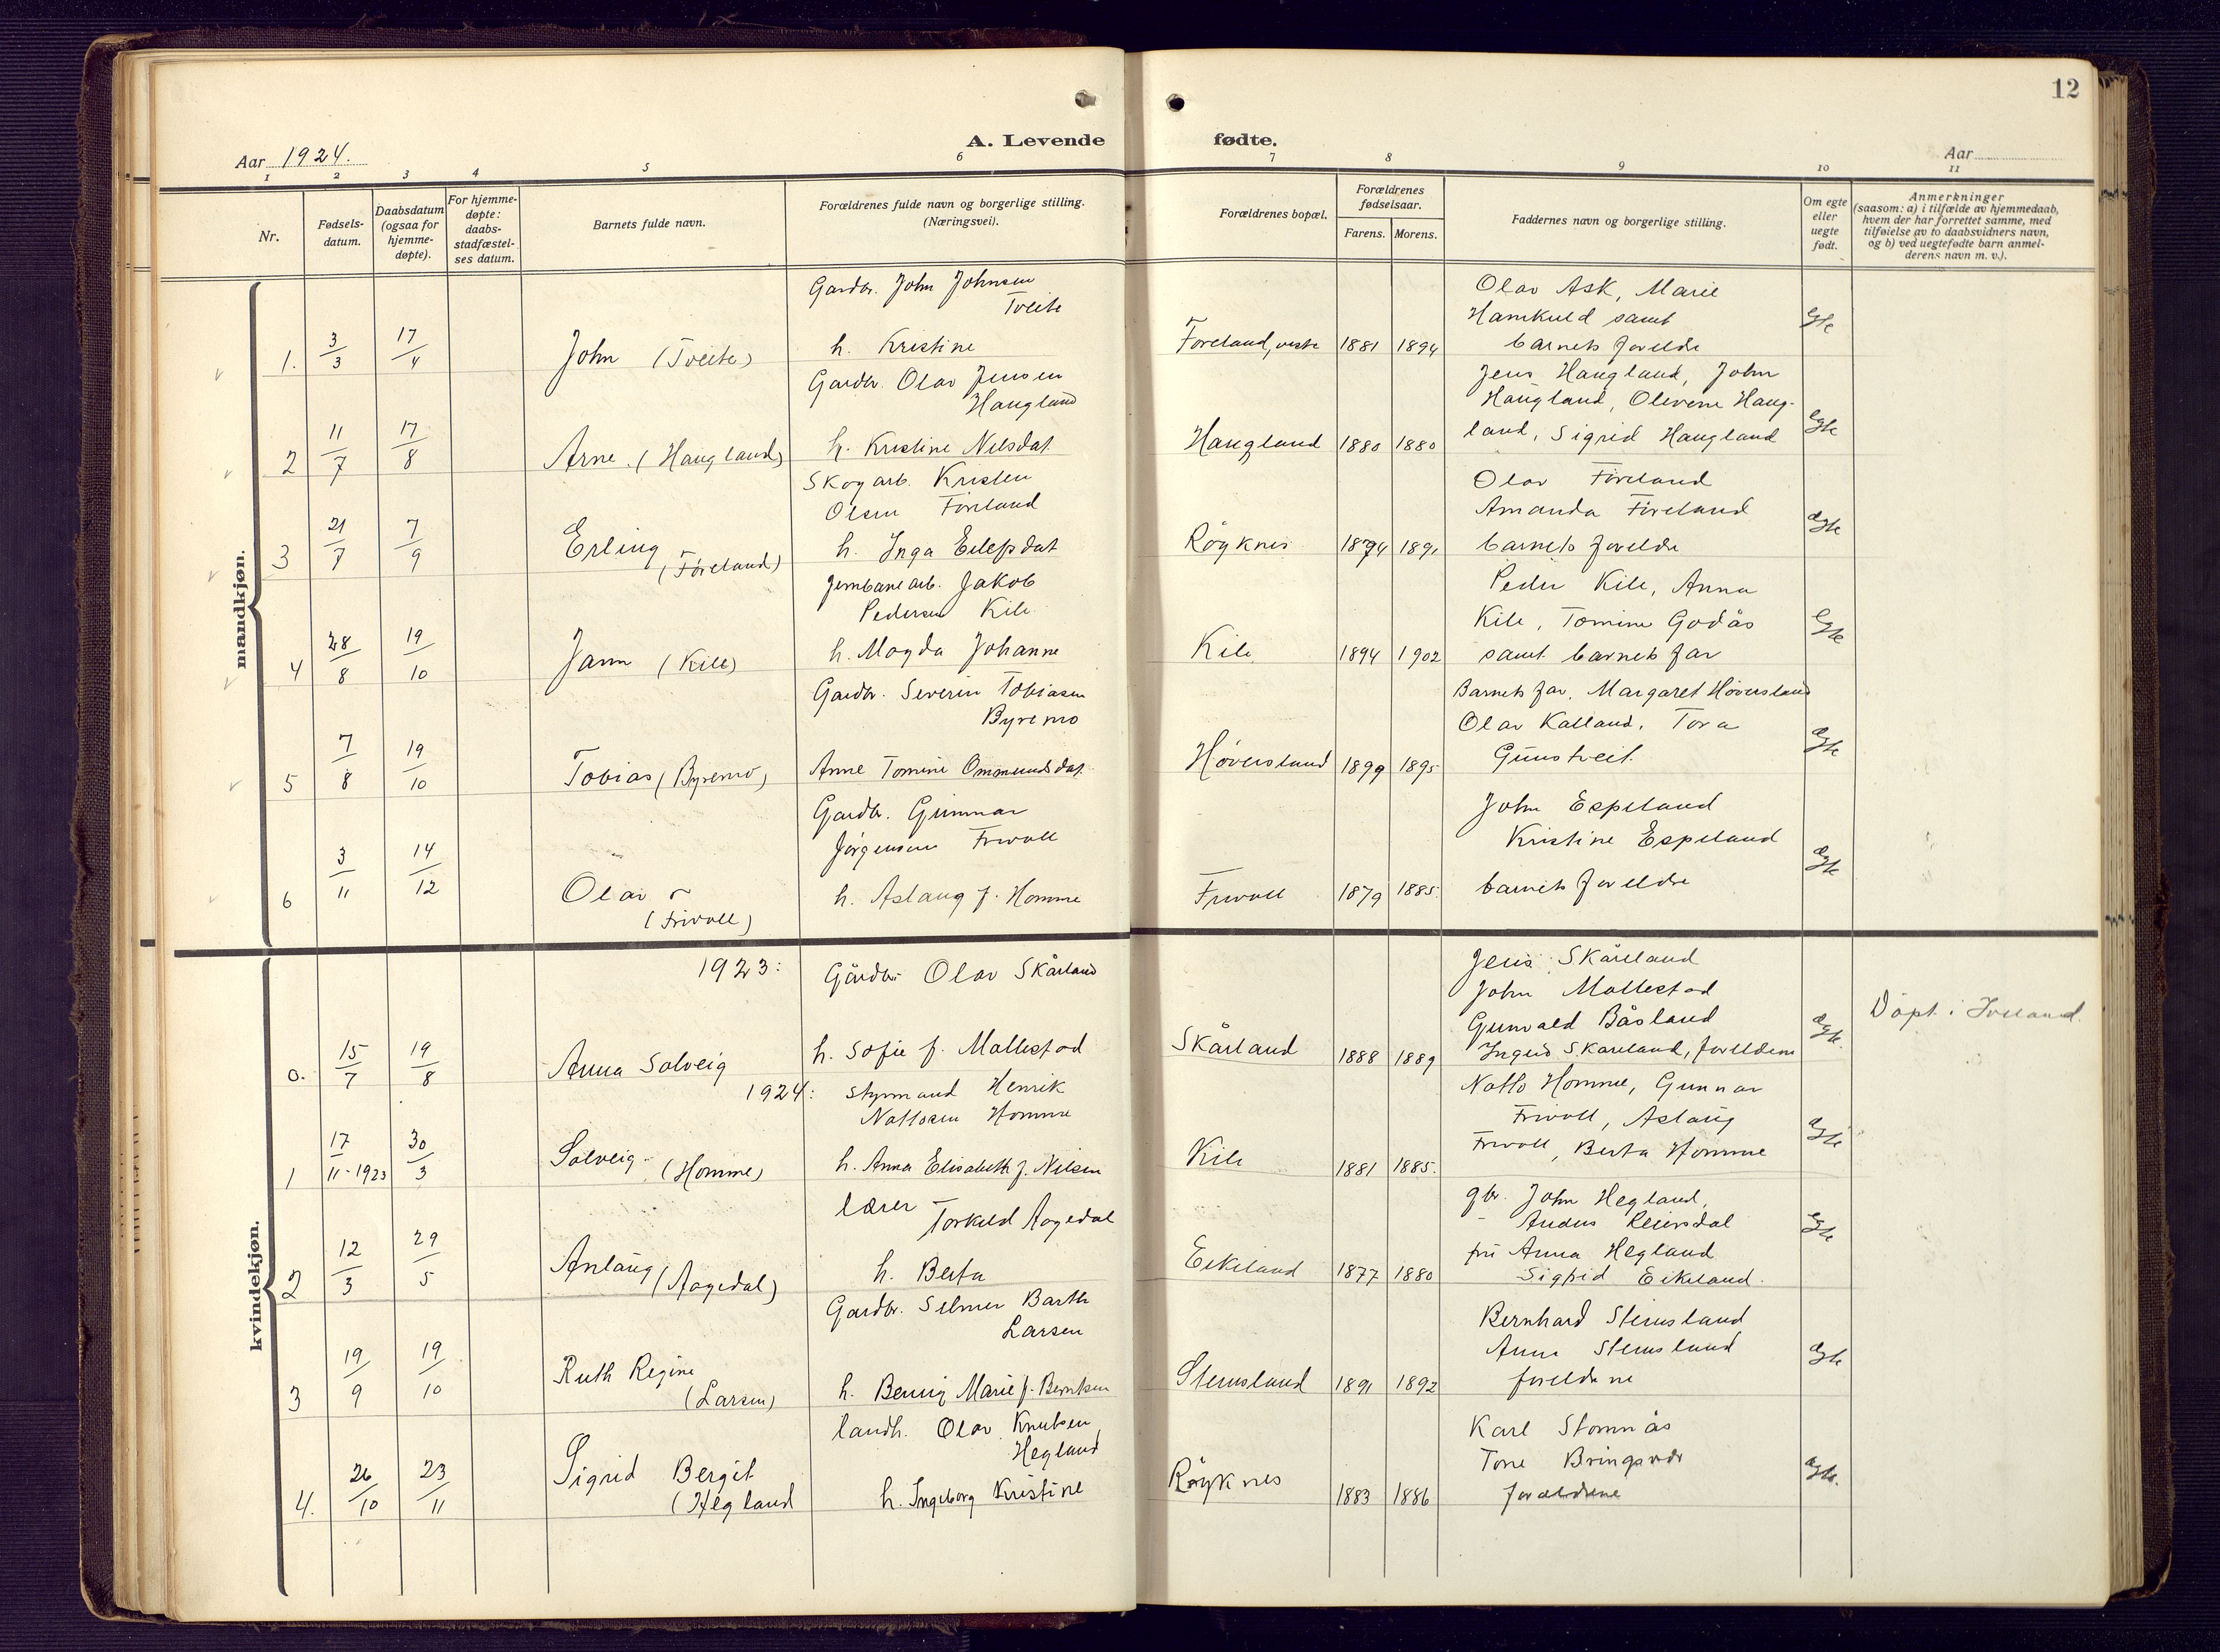 12
A. Levende fødte.
Aar 1924.
Aar
1 2 3 4 5 6 7 8 9 10 11
Nr.
Fødsels-
datum.
Daabsdatum
(ogsaa for
hjemme-
døpte).
For hjemme-
døpte:
daabs-
stadfæstel-
ses datum.
Barnets fulde navn.
Forældrenes fulde navn og borgerlige stilling.
(Næringsvei).
Forældrenes bopæl.
Forældrenes
fødselsaar.
Farens. Morens.
Faddernes navn og borgerlige stilling.
Om egte
eller
uegte
født.
Anmerkninger
(saasom: a) i tilfælde av hjemmedaab,
hvem der har forrettet samme, med
tilføielse av to daabsvidners navn,
og b) ved uegtefødte barn anmel-
derens navn m. v.).
mandkjøn.
1. 3/3 17/4 John (Tveite)
Gardbr. John Johnsen
Tveite
h. Kristine
Føreland, vestre 1881 1894
Olav Ask, Marie
Hamkuld samt
barnets foreldre
egte
2 11/7 17/8 Arne (Haugland)
Gardbr. Olav Jensen
Haugland
h. Kristine Nilsdat.
Haugland 1880 1880
Jens Haugland, John
Haugland, Olevine Haug-
land, Sigrid Haugland
egte
3 21/7 7/9 Erling
(Föreland)
Skogarb. Kristen
Olsen Föreland
h. Inga Eilefsdat
Röyknes 1894 1891
Olav Föreland
Amanda Föreland
barnets foreldre
egte
4 28/8 19/10 Jann (Kile)
Jernbanearb. Jakob
Pedersen Kile
h. Magda Johanne
Kile 1894 1902
Peder Kile, Anna
Kile, Tomine Godås
samt barnets far
egte
5 7/8 19/10 Tobias (Byremo)
Gardbr. Severin Tobiasen
Byremo
Anne Tomine Ommundsdat.
Höversland 1899 1895
Barnets far, Margaret Höversland
Olav Kalland, Tora
Gunstveit.
egte
6 3/11 14/12 Olav
(Frivoll)
Gardbr. Gunnar
Jörgensen Frivoll
h. Aslaug f. Homme
Frivoll 1879 1885.
John Espeland
Kristine Espeland
barnets foreldre
egte
kvindekjøn.
1923:
0. 15/7 19/8 Anna Solveig
Gårdbr. Olav Skårland
h. Sofie f. Mollestad
Skårland 1888 1889
Jens Skåreland
John Mollestad
Gunvald Båsland
Ingrid Skåreland, foreldrene
egte.
Döpt i Iveland.
1924:
1 17/11-1923 30/3 Solveig (Homme)
Styrmand Henrik
Nottosen Homme
h. Anna Elisabeth f. Nilsen
Kile 1881 1885.
Notto Homme, Gunnar
Frivoll, Aslaug
Frivoll, Berta Homme
egte
2 12/3 29/5 Anlaug (Aagedal)
lærer
Torkild Aagedal
h. Berta
Eikeland 1877 1880
gbr. John Hegland,
- Anders Reiersdal
fru Anna Hegland
Sigrid Eikeland.
egte
3 19/9 19/10 Ruth Regine
(Larsen)
Gardbr. Selmer Barth
Larsen
h. Benny Marie f. Berntsen
Stemsland 1891 1892
Bernhard Stemsland
Anna Stemsland
foreldrene
egte
4. 26/10 23/11 Sigrid Bergit
(Hegland
landh. Olav Knutsen
Hegland
h. Ingeborg Kristine
Röyknes 1883 1886
Karl Stomnås
Tone Bringsvær
foreldrene
egte.